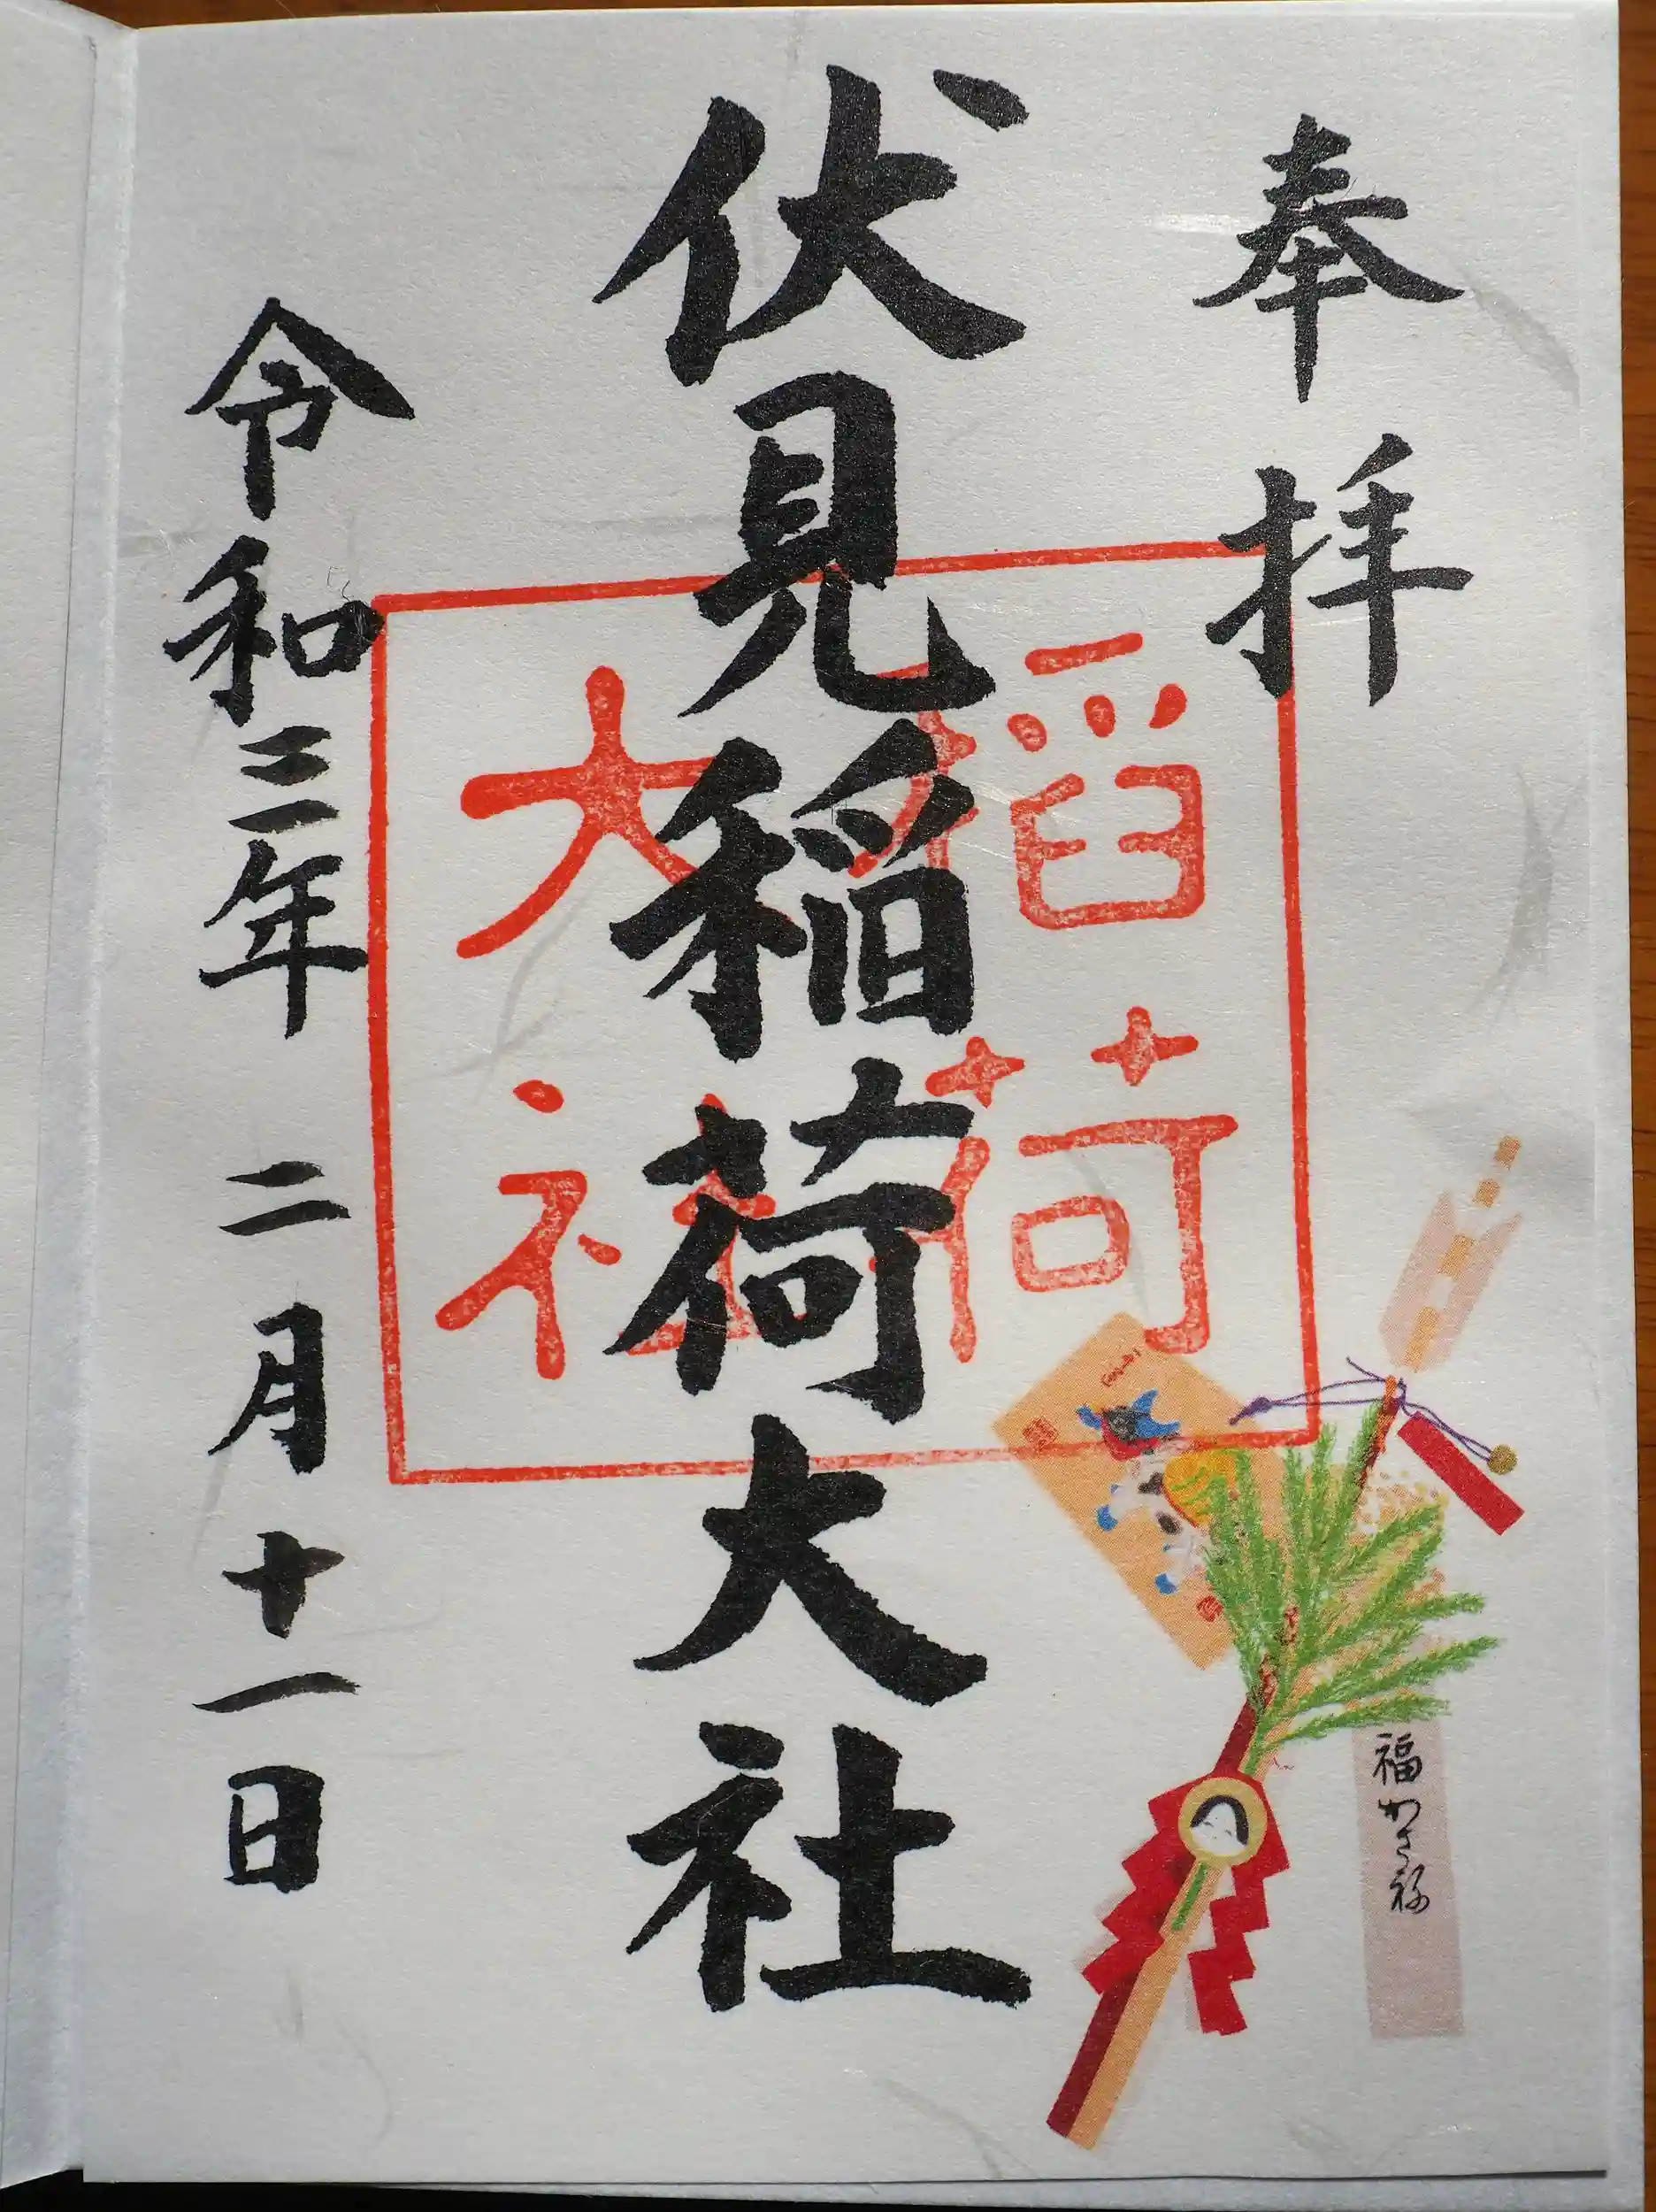 奉拝
伏見稲荷大社
稲荷
大社
令和三年 二月十一日
福かさ祢